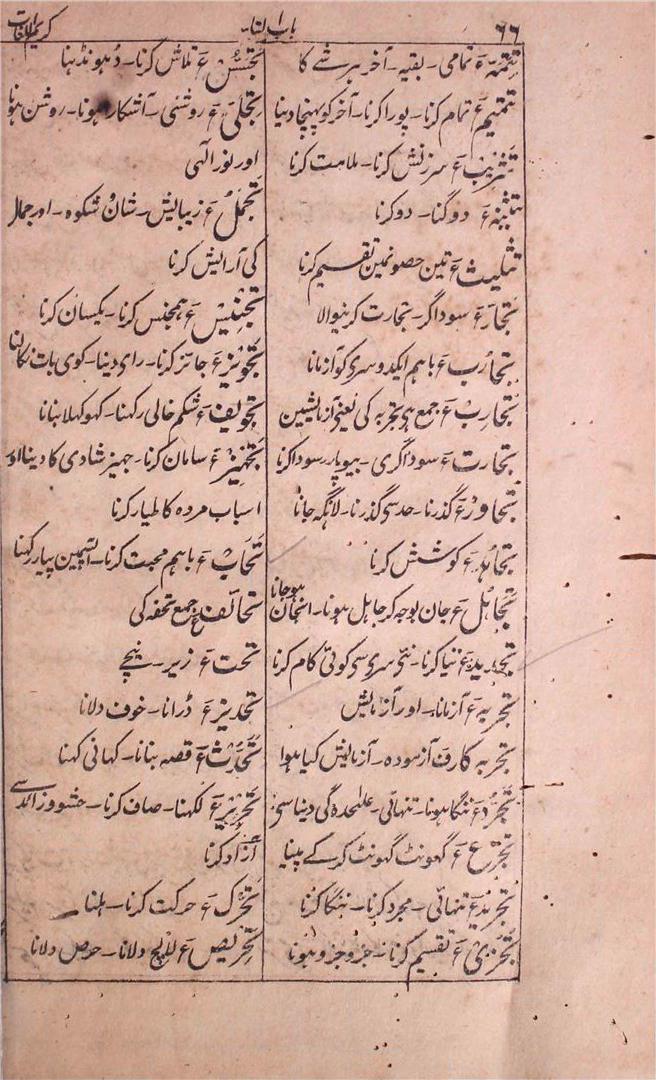 ۶۶ باب التا کریم اللغات
تتمہ ء تمامی۔ بقیہ۔ آخر ہر شے کا
تتمیم ء تمام کرنا۔ پورا کرنا۔ آخر کو پہنچا دینا
تثریب ء سرزنش کرنا۔ ملامت کرنا
تثنیہ ء دوگنا۔ دو کرنا
تثلیث ء تین حصونمین تقسیم کرنا
تجار ء سوداگر۔ تجارت کرنیوالا
تجارب ء باہم ایکدوسری کو آزمانا
تجارِب ء جمع ہی تجربہ کی یعنی آزمایشین
تجارت ء سوداگری۔ بیوپار۔ سودا کرنا
تجاوز ء گذرنا۔ حد سی گذرنا۔ لانگہ جانا
تجاہد ء کوشش کرنا
تجاہل ء جان بوجہ کر جاہل ہونا۔ انجان ہوجانا
تجدید ء نیا کرنا۔ نئی سری سی کوئی کام کرنا
تجربہ ء آزمانا۔ اور آزمایش
تجربہ کار ف آزمودہ۔ آزمایش کیا ہوا
تجرد ء ننگا ہونا۔ تنہائی۔ علٰحدہ گی دنیا سی
تجرع ء گھونٹ گھونٹ کرکے پینا
تجرید ء تنہائی۔ مجرد کرنا۔ ننگا کرنا
تجزی ء تقسیم کرنا۔ جزو جزو ہونا
تجسس ء تلاش کرنا۔ ڈہونڈہنا
تجلی ء روشنی۔ آشکار ہونا۔ روشن ہونا
اور نور الٰہی
تجمل ء زیبایش۔ شان و شکوہ۔ اور جمال
کی آرایش کرنا
تجنیس ء ہمجنس کرنا۔ یکسان کرنا
تجویز ء جائز کرنا۔ رای دینا۔ کوی بات نکالنا
تجویف ء شکم خالی رکھنا۔ کہوکہلا بنانا
تجہیز ء سامان کرنا۔ جہیز شادی کا دینا اور
اسباب مردہ کا طیار کرنا
تحاب ء باہم محبت کرنا۔ آپسمین پیار رکہنا
تحائف ء جمع تحفہ کی
تحت ء زیر۔ نیچے
تحذیر ء ڈرانا۔ خوف دلانا
تحدث ء قصہ بنانا۔ کہانی کہنا
تحریر ء لکہنا۔ صاف کرنا۔ حشو و زائد سے
آزاد کرنا
تحرک ء حرکت کرنا۔ ہلنا
تحریص ء لالچ دلانا۔ حرص دلانا